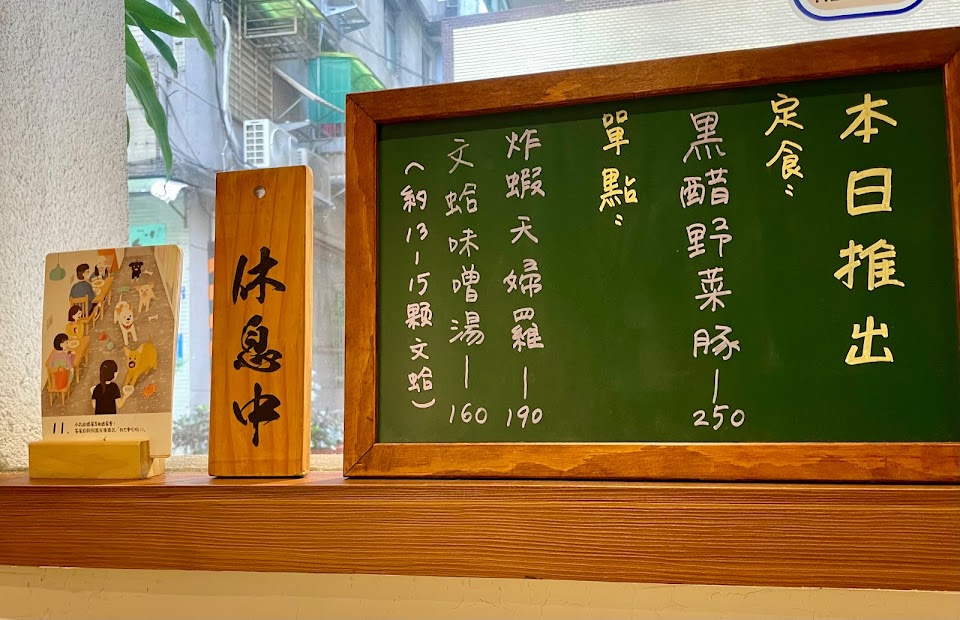 本日推出
定食:
黑醋野菜豚-250
單點:
炸蝦天婦羅-190
文蛤味噌湯-160
(約13-15顆文蛤)
休息中
11.